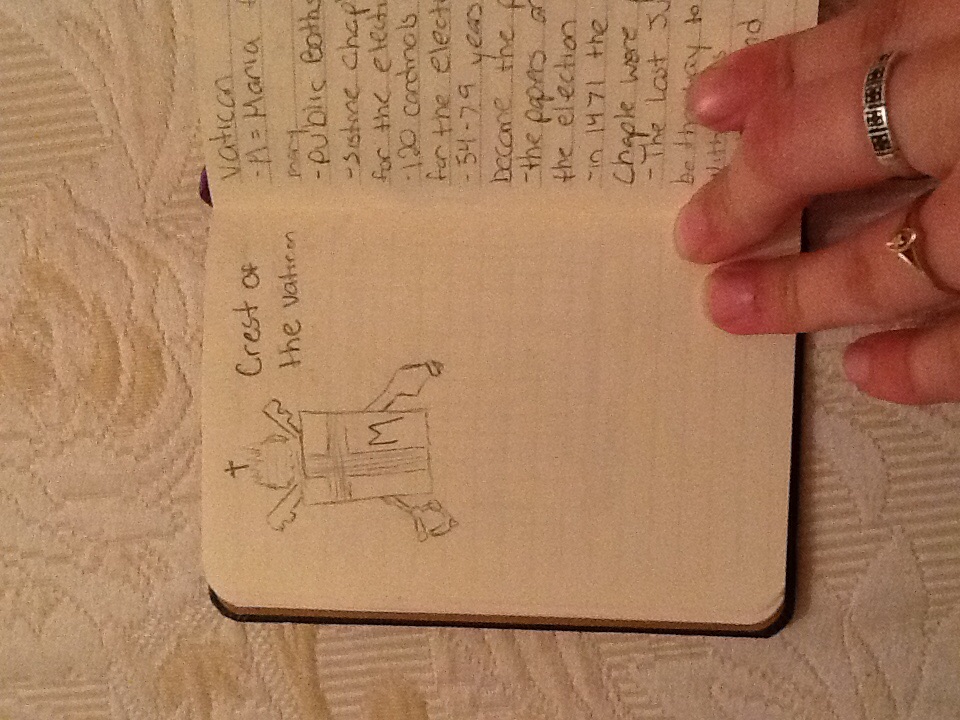 Crest of
the Vatican
M
Vatican
-A = Maria
many
-public Baths
-Sistine chap
for the electi
-120 cardinals
for the elect
-54-79 years
become the p
-the papers a
the election
-in 1471 the
Chaple were
-The Last Ju
be th way to
with
nd